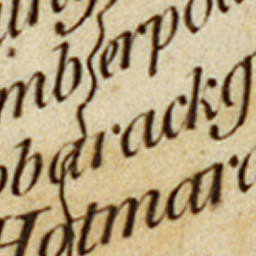 mberpo
obarackg
Hotmara